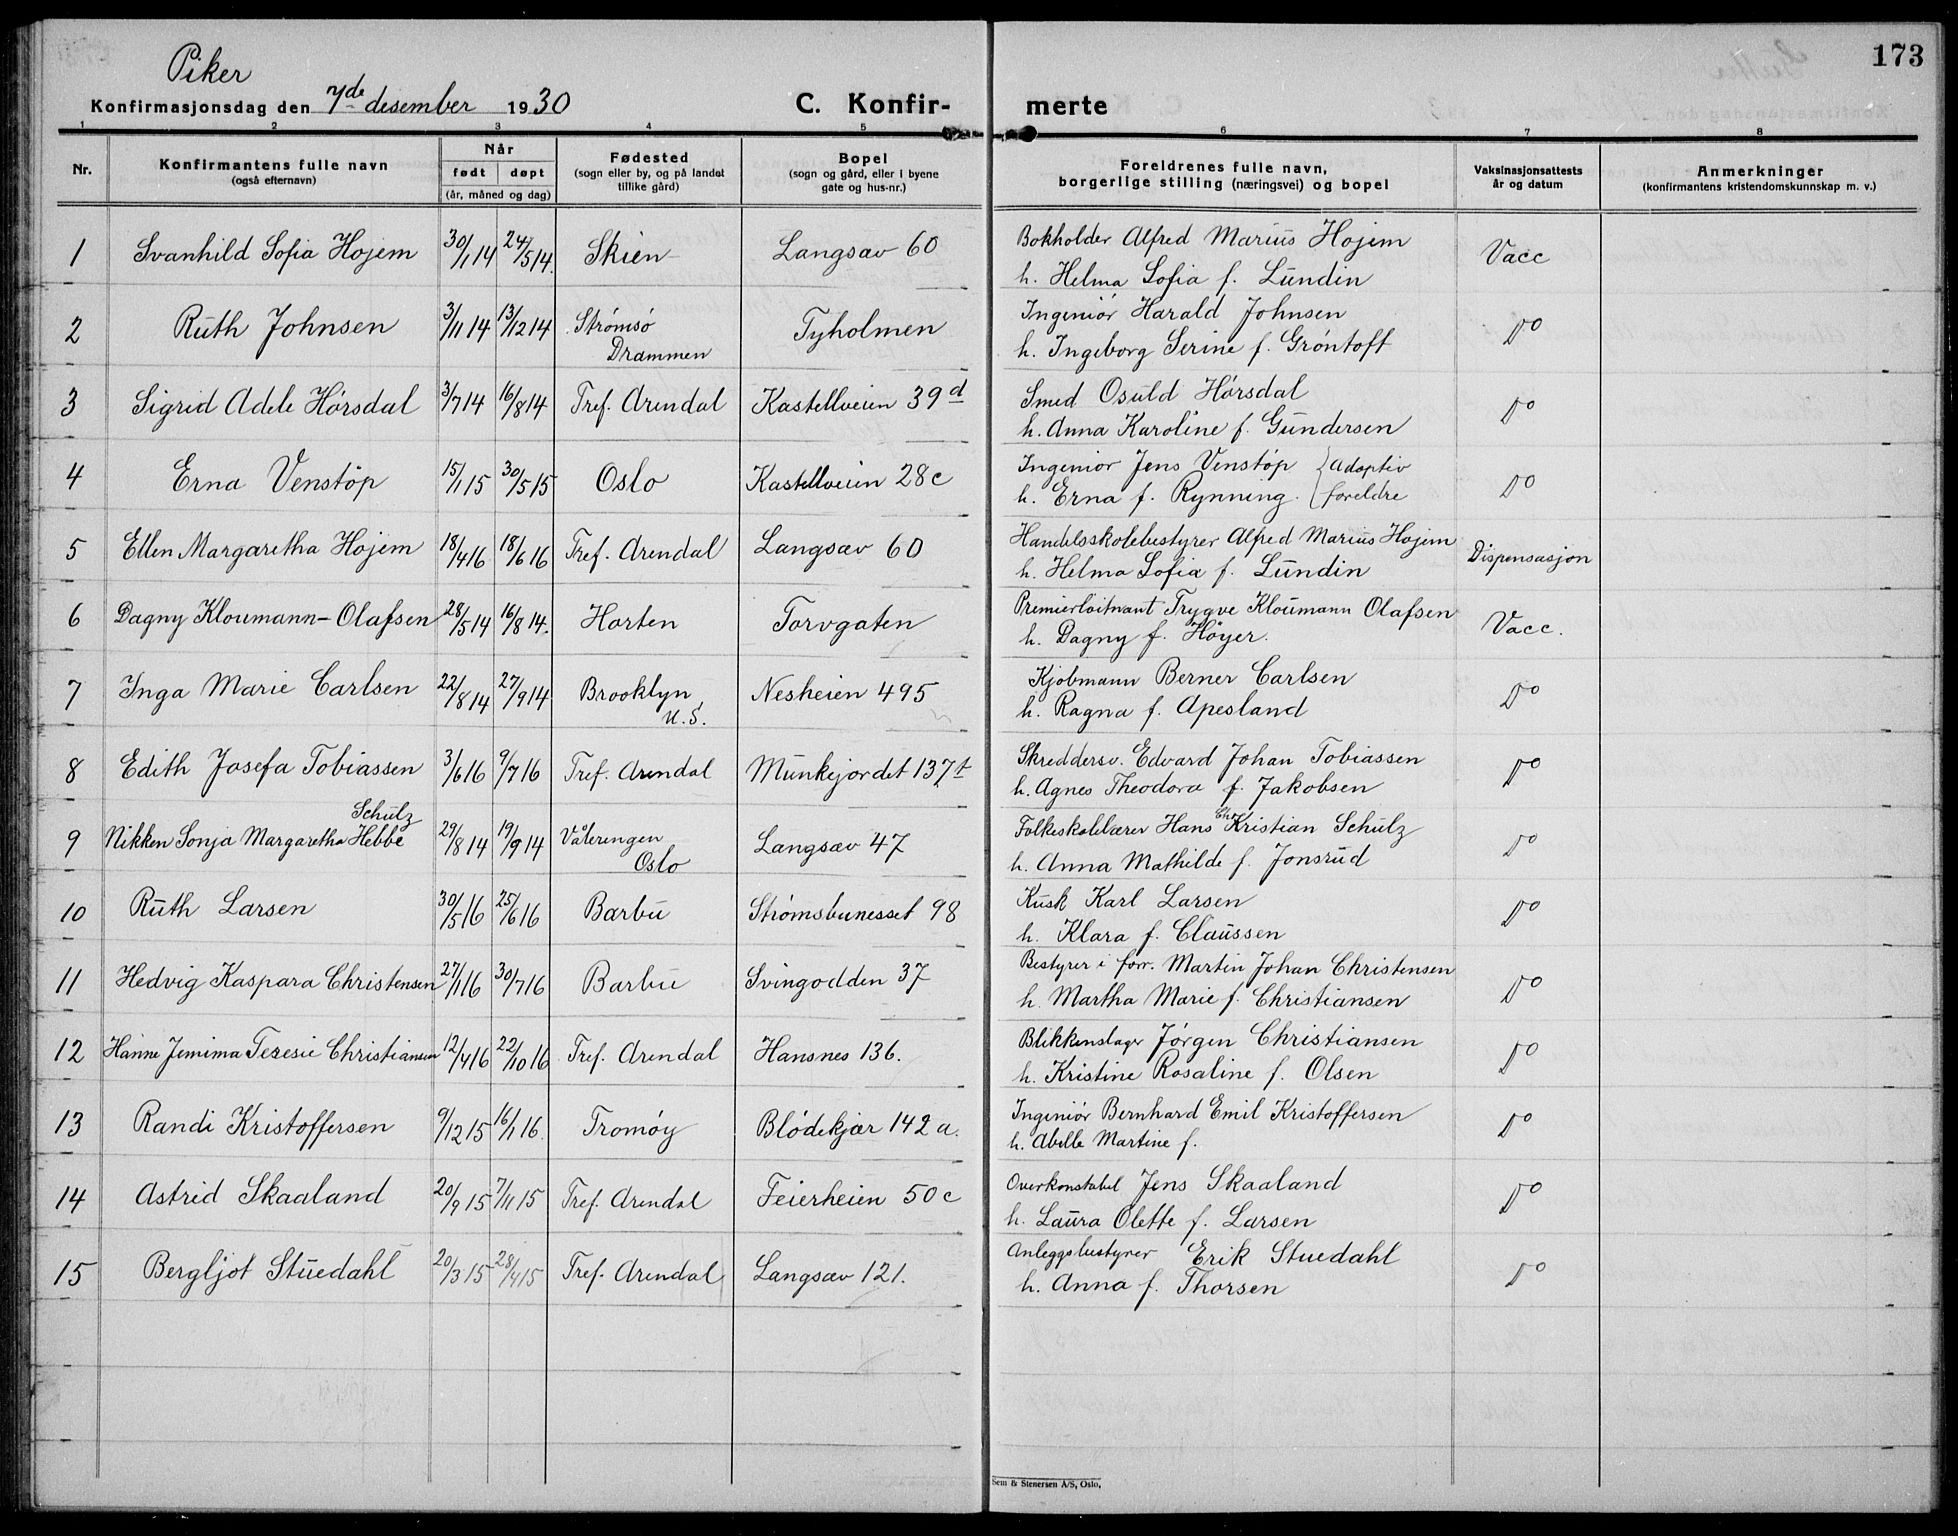 173
Piker
Konfirmasjonsdag den 7de desember 1930
C. Konfir-
merte
1 2 3 4 5 6 7 8
Nr.
Konfirmantens fulle navn
(også efternavn)
Når
født døpt
(år, måned og dag)
Fødested
(sogn eller by, og på landet
tillike gård)
Bopel
(sogn og gård, eller i byene
gate og hus-nr.)
Foreldrenes fulle navn,
borgerlige stilling (næringsvei) og bopel
Vaksinasjonsattests
år og datum
Anmerkninger
(konfirmantens kristendomskunnskap m. v.)
1 Svanhild Sofia Hojem 30/1 14 24/5 14. Skien Langsæv 60 Bokholder Alfred Marius Hojem Vacc
h. Helma Sofia f. Lundin
2 Ruth Johnsen 3/11 14 13/12 14 Strømsö Tyholmen Ingeniör Harald Johnsen Do
Drammen h. Ingeborg Serine f. Gröntoft
3 Sigrid Adele Hörsdal 3/7 14 16/8 14 Tref. Arendal Kastellveien 39d Smed Osuld Hörsdal Do
h. Anna Karoline f. Gundersen
4 Erna Venstöp 15/1 15 30/5 15 Oslo Kastellveien 28c Ingeniör Jens Venstöp { Adoptiv Do
h. Erna f. Rynning. { foreldre
5 Ellen Margaretha Hojem 18/4 16 18/6 16 Tref. Arendal Langsæv 60 Handelsskolebestyrer Alfred Marius Hojem Dispensasjon
h. Helma Sofia f. Lundin
6 Dagny Kloumann-Olafsen 28/5 14 16/8 14. Horten Torvgaten Premierløitnant Trygve Kloumann Olafsen Vacc.
h. Dagny f. Höyer.
7 Inga Marie Carlsen 22/8 14 27/9 14 Brooklyn Nesheien 495 Kjöbmann Berner Carlsen Do
U.S. h. Ragna f. Apesland
8 Edith Josefa Tobiassen 3/6 16 9/7 16 Tref. Arendal Munkejordet 137t Skreddersv. Edvard Johan Tobiassen Do
h. Agnes Theodora f. Jakobsen
Schulz
9 Nikken Sonja Margaretha Hebbe 29/8 14 19/9 14 Vålerengen Langsæv 47 Folkeskolelærer Hans Chr Kristian Schulz Do
Oslo h. Anna Mathilde f. Jonsrud
10 Ruth Larsen 30/5 16 25/6 16 Barbu Strømsbunesset 98 Kusk Karl Larsen Do
h. Klara f. Claussen
11 Hedvig Kaspara Christensen 27/1 16 30/7 16 Barbu Svingodden 37 Bestyrer i forr. Martin Johan Christensen Do
h. Martha Marie f. Christiansen
12 Hanne Jemima Teresie Christiansen 12/4 16 22/10 16 Tref. Arendal Hansnes 136. Blikkenslager Jörgen Christiansen Do
h. Kristine Rosaline f. Olsen
13 Randi Kristoffersen 9/12 15 16/1 16. Tromöy Blödekjær 142 a. Ingeniör Bernhard Emil Kristoffersen Do
h. Abelle Martine f.
14 Astrid Skaaland 20/9 15 7/11 15 Tref. Arendal Feierheien 50 c Overkonstabel Jens Skaaland Do
h. Laura Olette f. Larsen
15 Bergljot Stuedahl 20/3 15 28/4 15 Tref. Arendal Langsæv 121. Anleggsbestyrer Erik Stuedahl Do
h. Anna f. Thorsen
Sem & Stenersen A/S, Oslo.